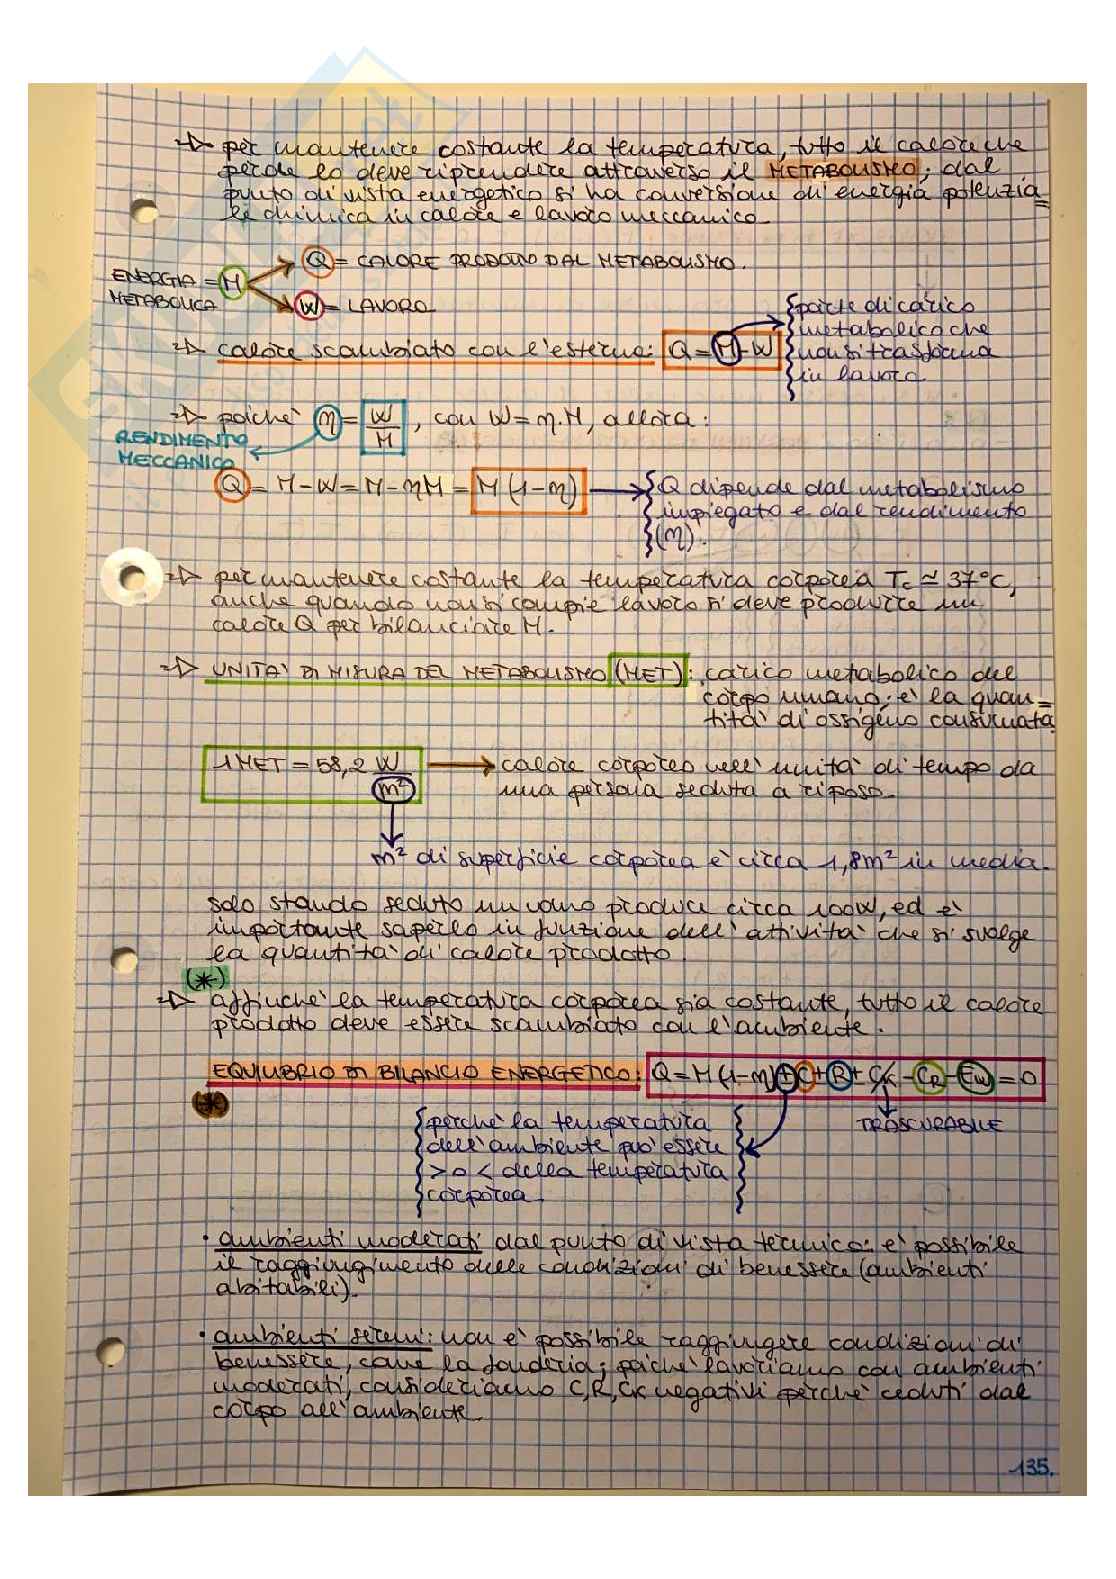 => per mantenere costante la temperatura, tutto il calore che
perde lo deve riprendere attraverso il METABOLISMO; dal
punto di vista energetico si ha conversione di energia potenzia=
le chimica in calore e lavoro meccanico.
Q = CALORE PRODOTTO DAL METABOLISMO.
ENERGIA = M
METABOLICA
W = LAVORO
=> calore scambiato con l'esterno: Q = M - W
parte di carico
metabolico che
non si trasforma
in lavoro
=> poichè η = W/M, con W = η·M, allora:
RENDIMENTO
MECCANICO
Q = M - W = M - ηM = M (1-η)
Q dipende dal metabolismo
impiegato e dal rendimento
(η).
=> per mantenere costante la temperatura corporea Tc ≃ 37°C,
anche quando non si compie lavoro si deve produrre un
calore Q per bilanciare M.
=> UNITA' DI MISURA DEL METABOLISMO (MET): carico metabolico del
corpo umano; e' la quan=
tità di ossigeno consumata.
1 MET = 58,2 W/m²
calore corporeo nell'unità di tempo da
una persona seduta a riposo.
m² di superficie corporea e' circa 1,8m² in media.
solo stando seduto un uomo produce circa 100W, ed e'
importante saperlo in funzione dell'attività che si svolge
la quantità di calore prodotto.
(*)
=> affinchè la temperatura corporea sia costante, tutto il calore
prodotto deve essere scambiato con l'ambiente.
EQUILIBRIO DI BILANCIO ENERGETICO: Q = M (1-η) + C + R + CK - CR - EW = 0
(*)
TRASCURABILE
perchè la temperatura
dell'ambiente può essere
> o < della temperatura
corporea.
• ambienti moderati dal punto di vista termico: e' possibile
il raggiungimento delle condizioni di benessere (ambienti
abitabili).
• ambienti severi: non e' possibile raggiungere condizioni di
benessere, come la fonderia; poichè lavoriamo con ambienti
moderati, consideriamo C, R, CK negativi perchè ceduti dal
corpo all'ambiente.
135.